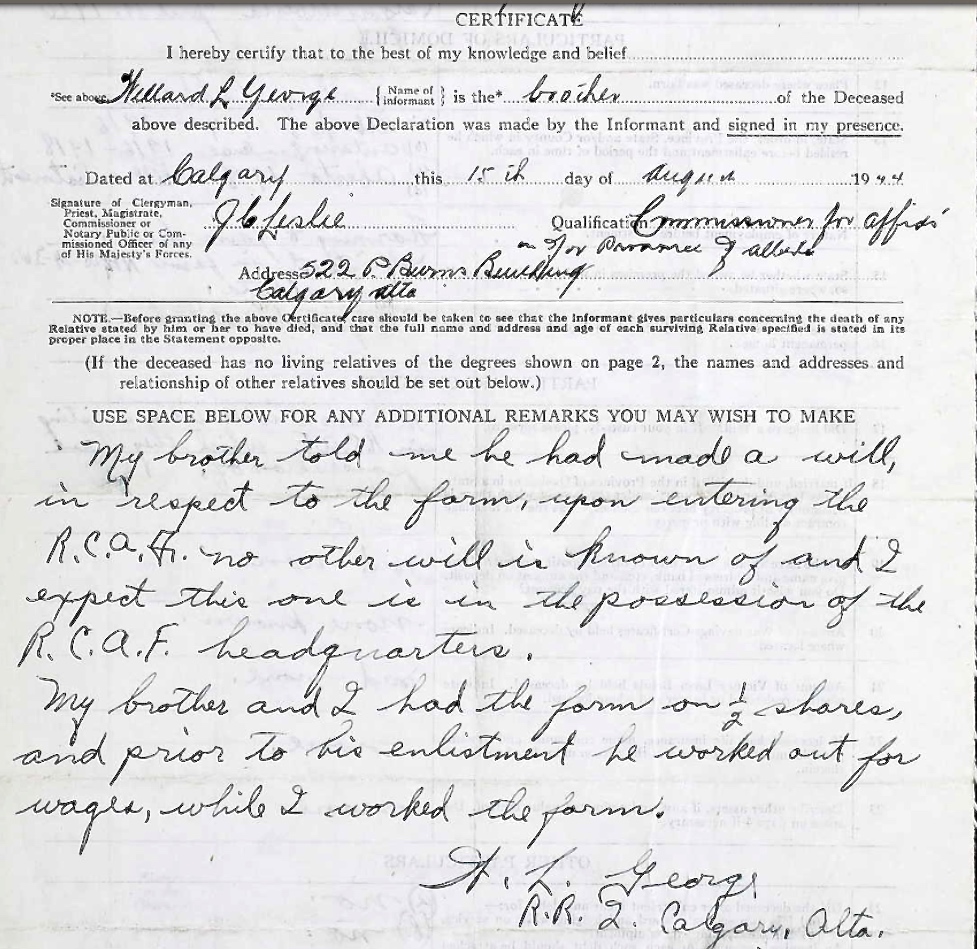 CERTIFICATE
I hereby certify that to the best of my knowledge and belief
*See above Willard L George {Name of informant} is the* brother of the Deceased
above described. The above Declaration was made by the Informant and signed in my presence.
Dated at Calgary this 15th day of August 1944
Signature of Clergyman,
Priest, Magistrate,
Commissioner or
Notary Public or Com-
missioned Officer of any
of His Majesty's Forces.
J C Leslie
Qualification Commissioner for affidts
in & for Province of Alberta
Address 522 P Burns Building
Calgary Alta
NOTE.—Before granting the above Certificate, care should be taken to see that the Informant gives particulars concerning the death of any
Relative stated by him or her to have died, and that the full name and address and age of each surviving Relative specified is stated in its
proper place in the Statement opposite.
(If the deceased has no living relatives of the degrees shown on page 2, the names and addresses and
relationship of other relatives should be set out below.)
USE SPACE BELOW FOR ANY ADDITIONAL REMARKS YOU MAY WISH TO MAKE
My brother told me he had made a will,
in respect to the farm, upon entering the
R.C.A.F. no other will is known of and I
expect this one is in the possession of the
R.C.A.F. headquarters.
My brother and I had the farm on ½ shares,
and prior to his enlistment he worked out for
wages, while I worked the farm.
W. L. George
R.R. 2. Calgary, Alta.